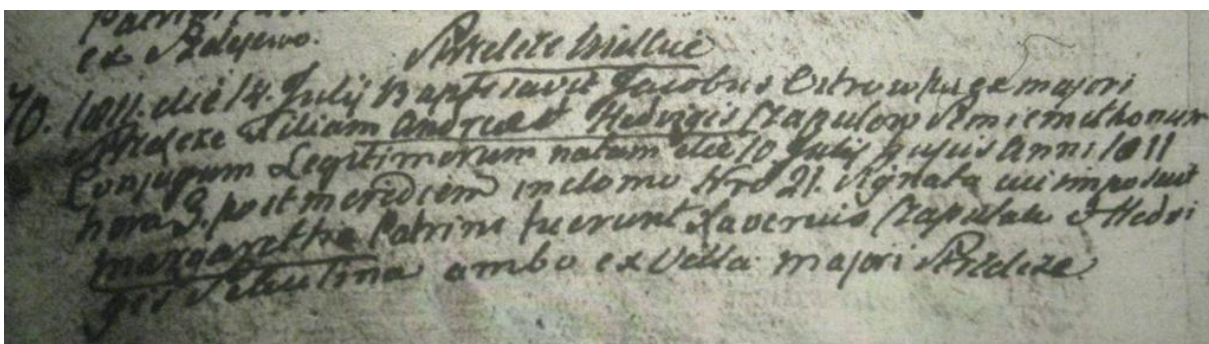 Patrini
ex
Strzelcze Wielkie
70. 1811. die 14. Julij Baptisavit Jacobus Ostrowski ex majori
Strzelcze Filiam Andreae & Hedvigis Czapulow Semicmethonum
Conjugum Legitimorum natam die 10 Julij hujus Anni 1811
hora 3. post meridiem in domo Nro 21. Signata cui imposuit
Margarettha Patrini fuerunt Laverius Czapulak & Hedvi
gis ambo ex Villa majori Strzelcze